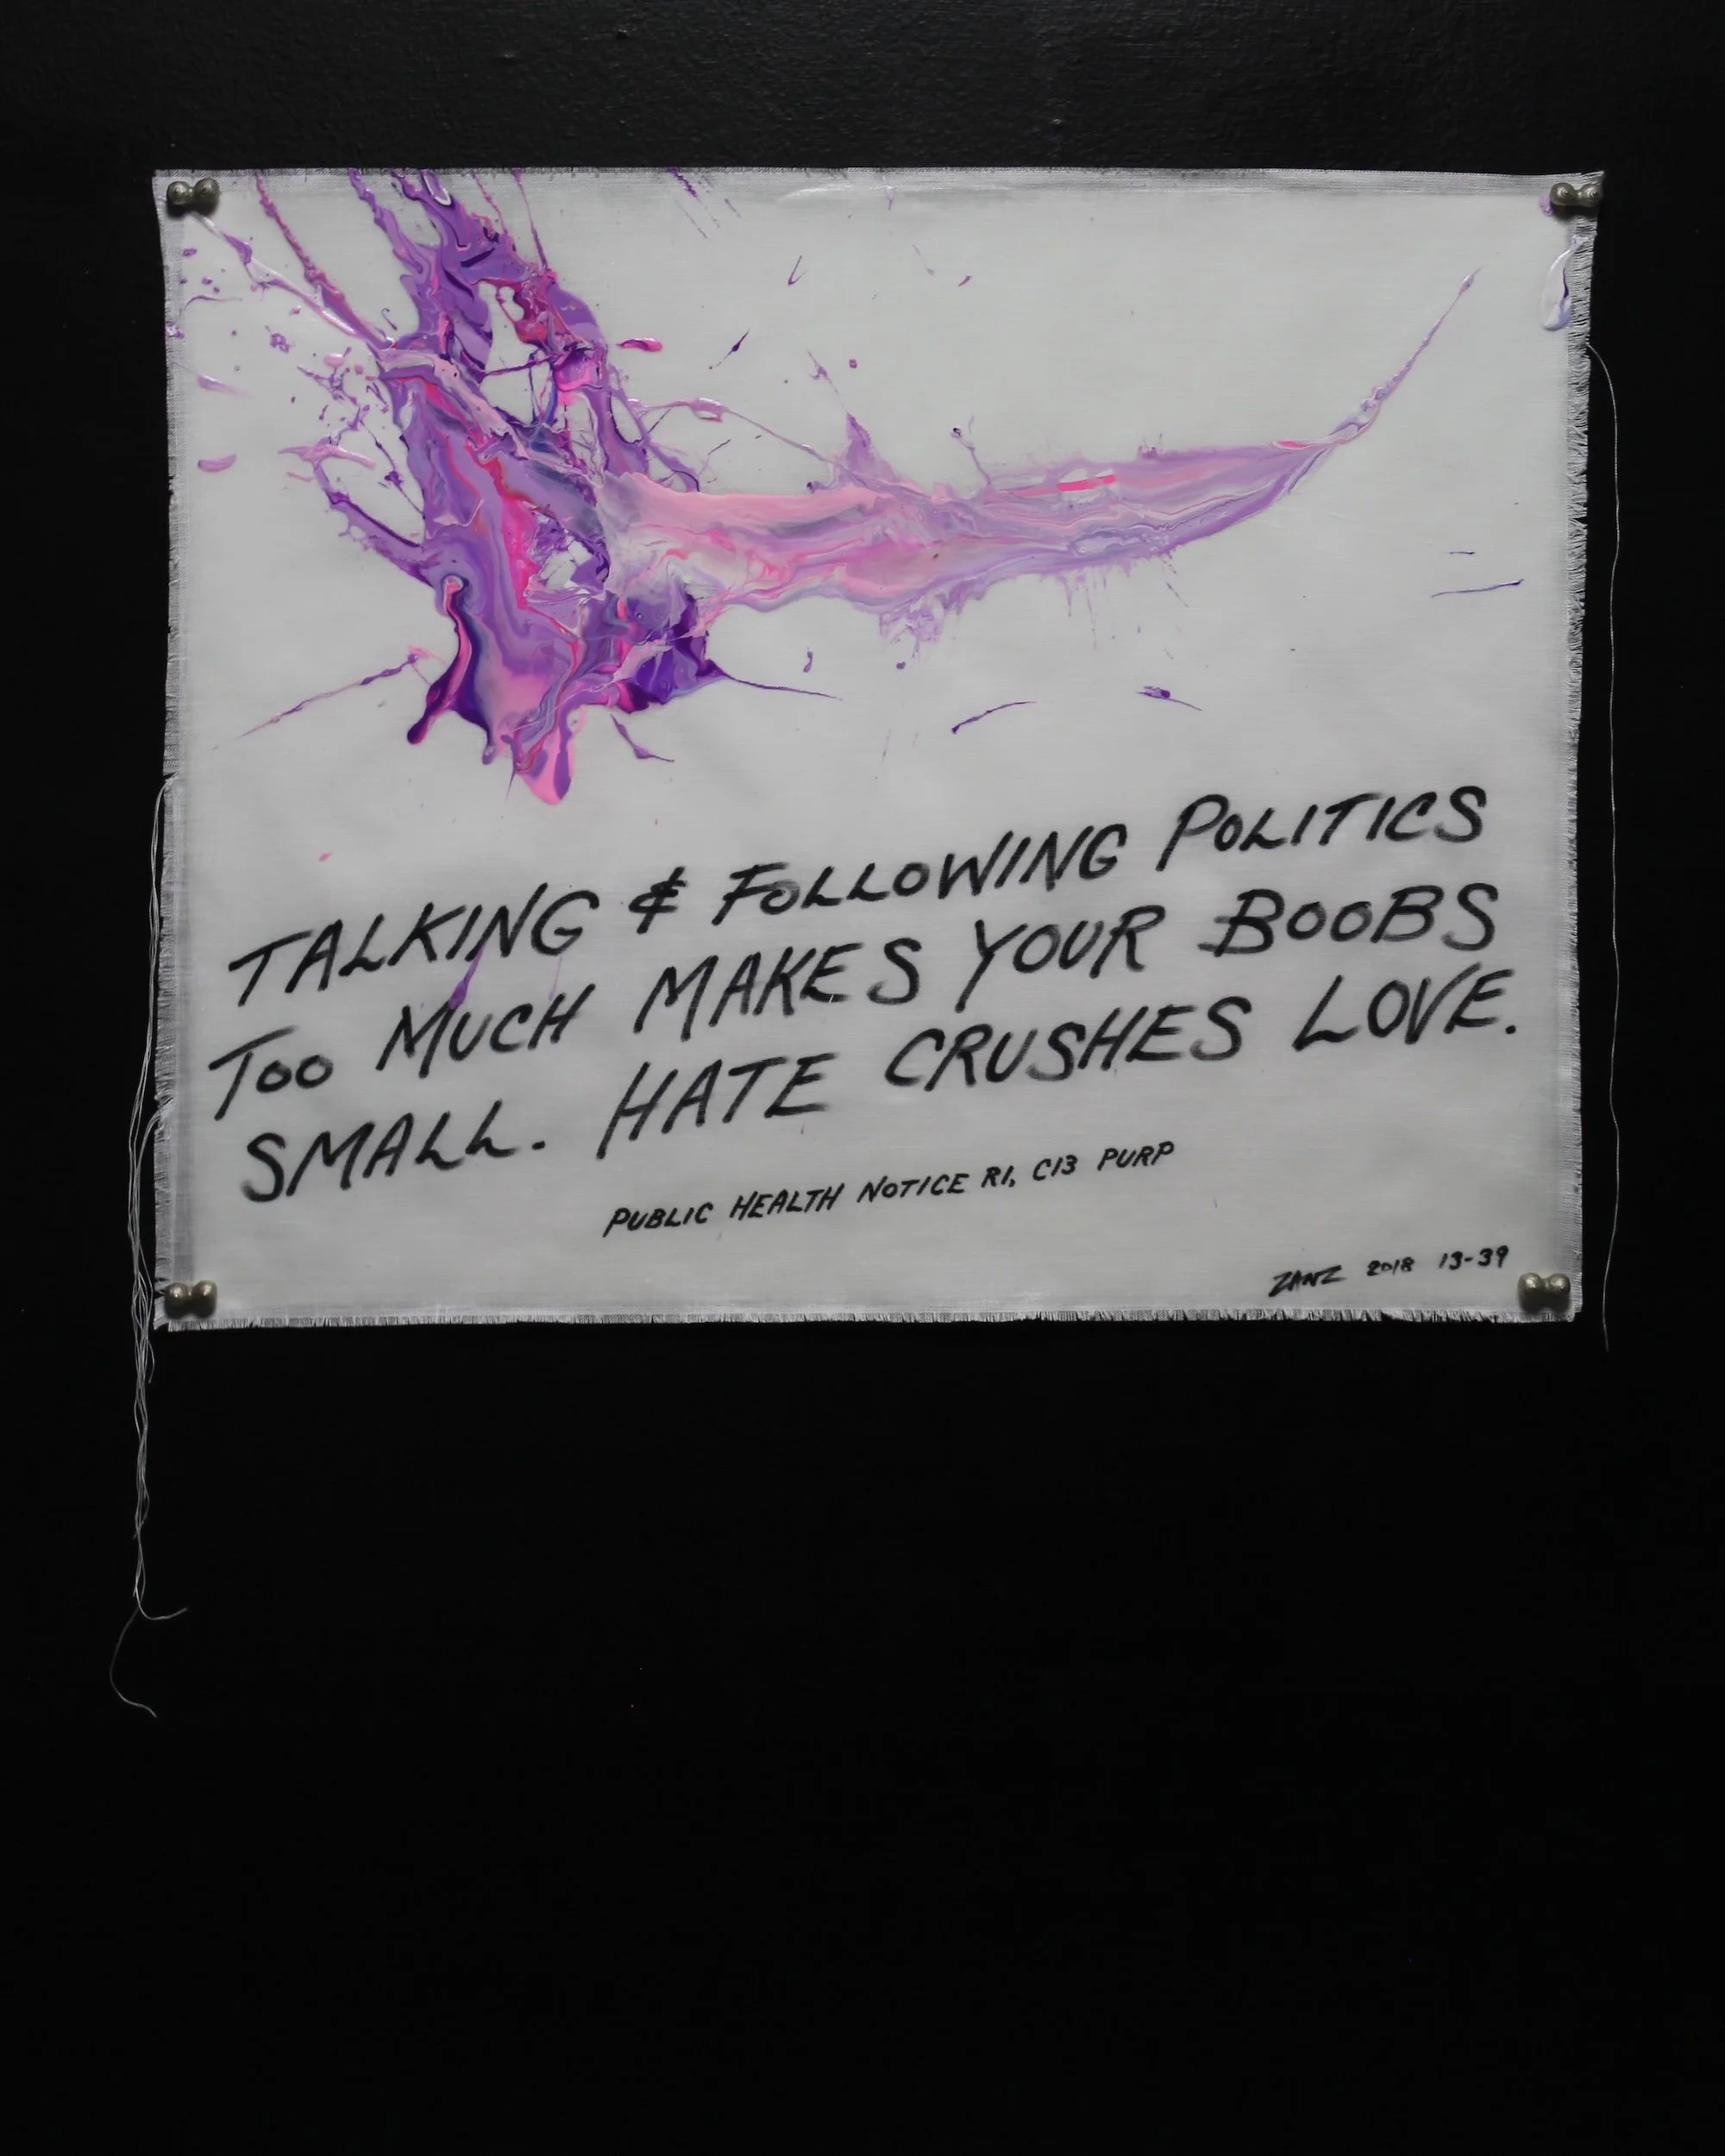 TALKING & FOLLOWING POLITICS
TOO MUCH MAKES YOUR BOOBS
SMALL. HATE CRUSHES LOVE.
PUBLIC HEALTH NOTICE R1, C13 PURP
ZANZ 2018 13-39